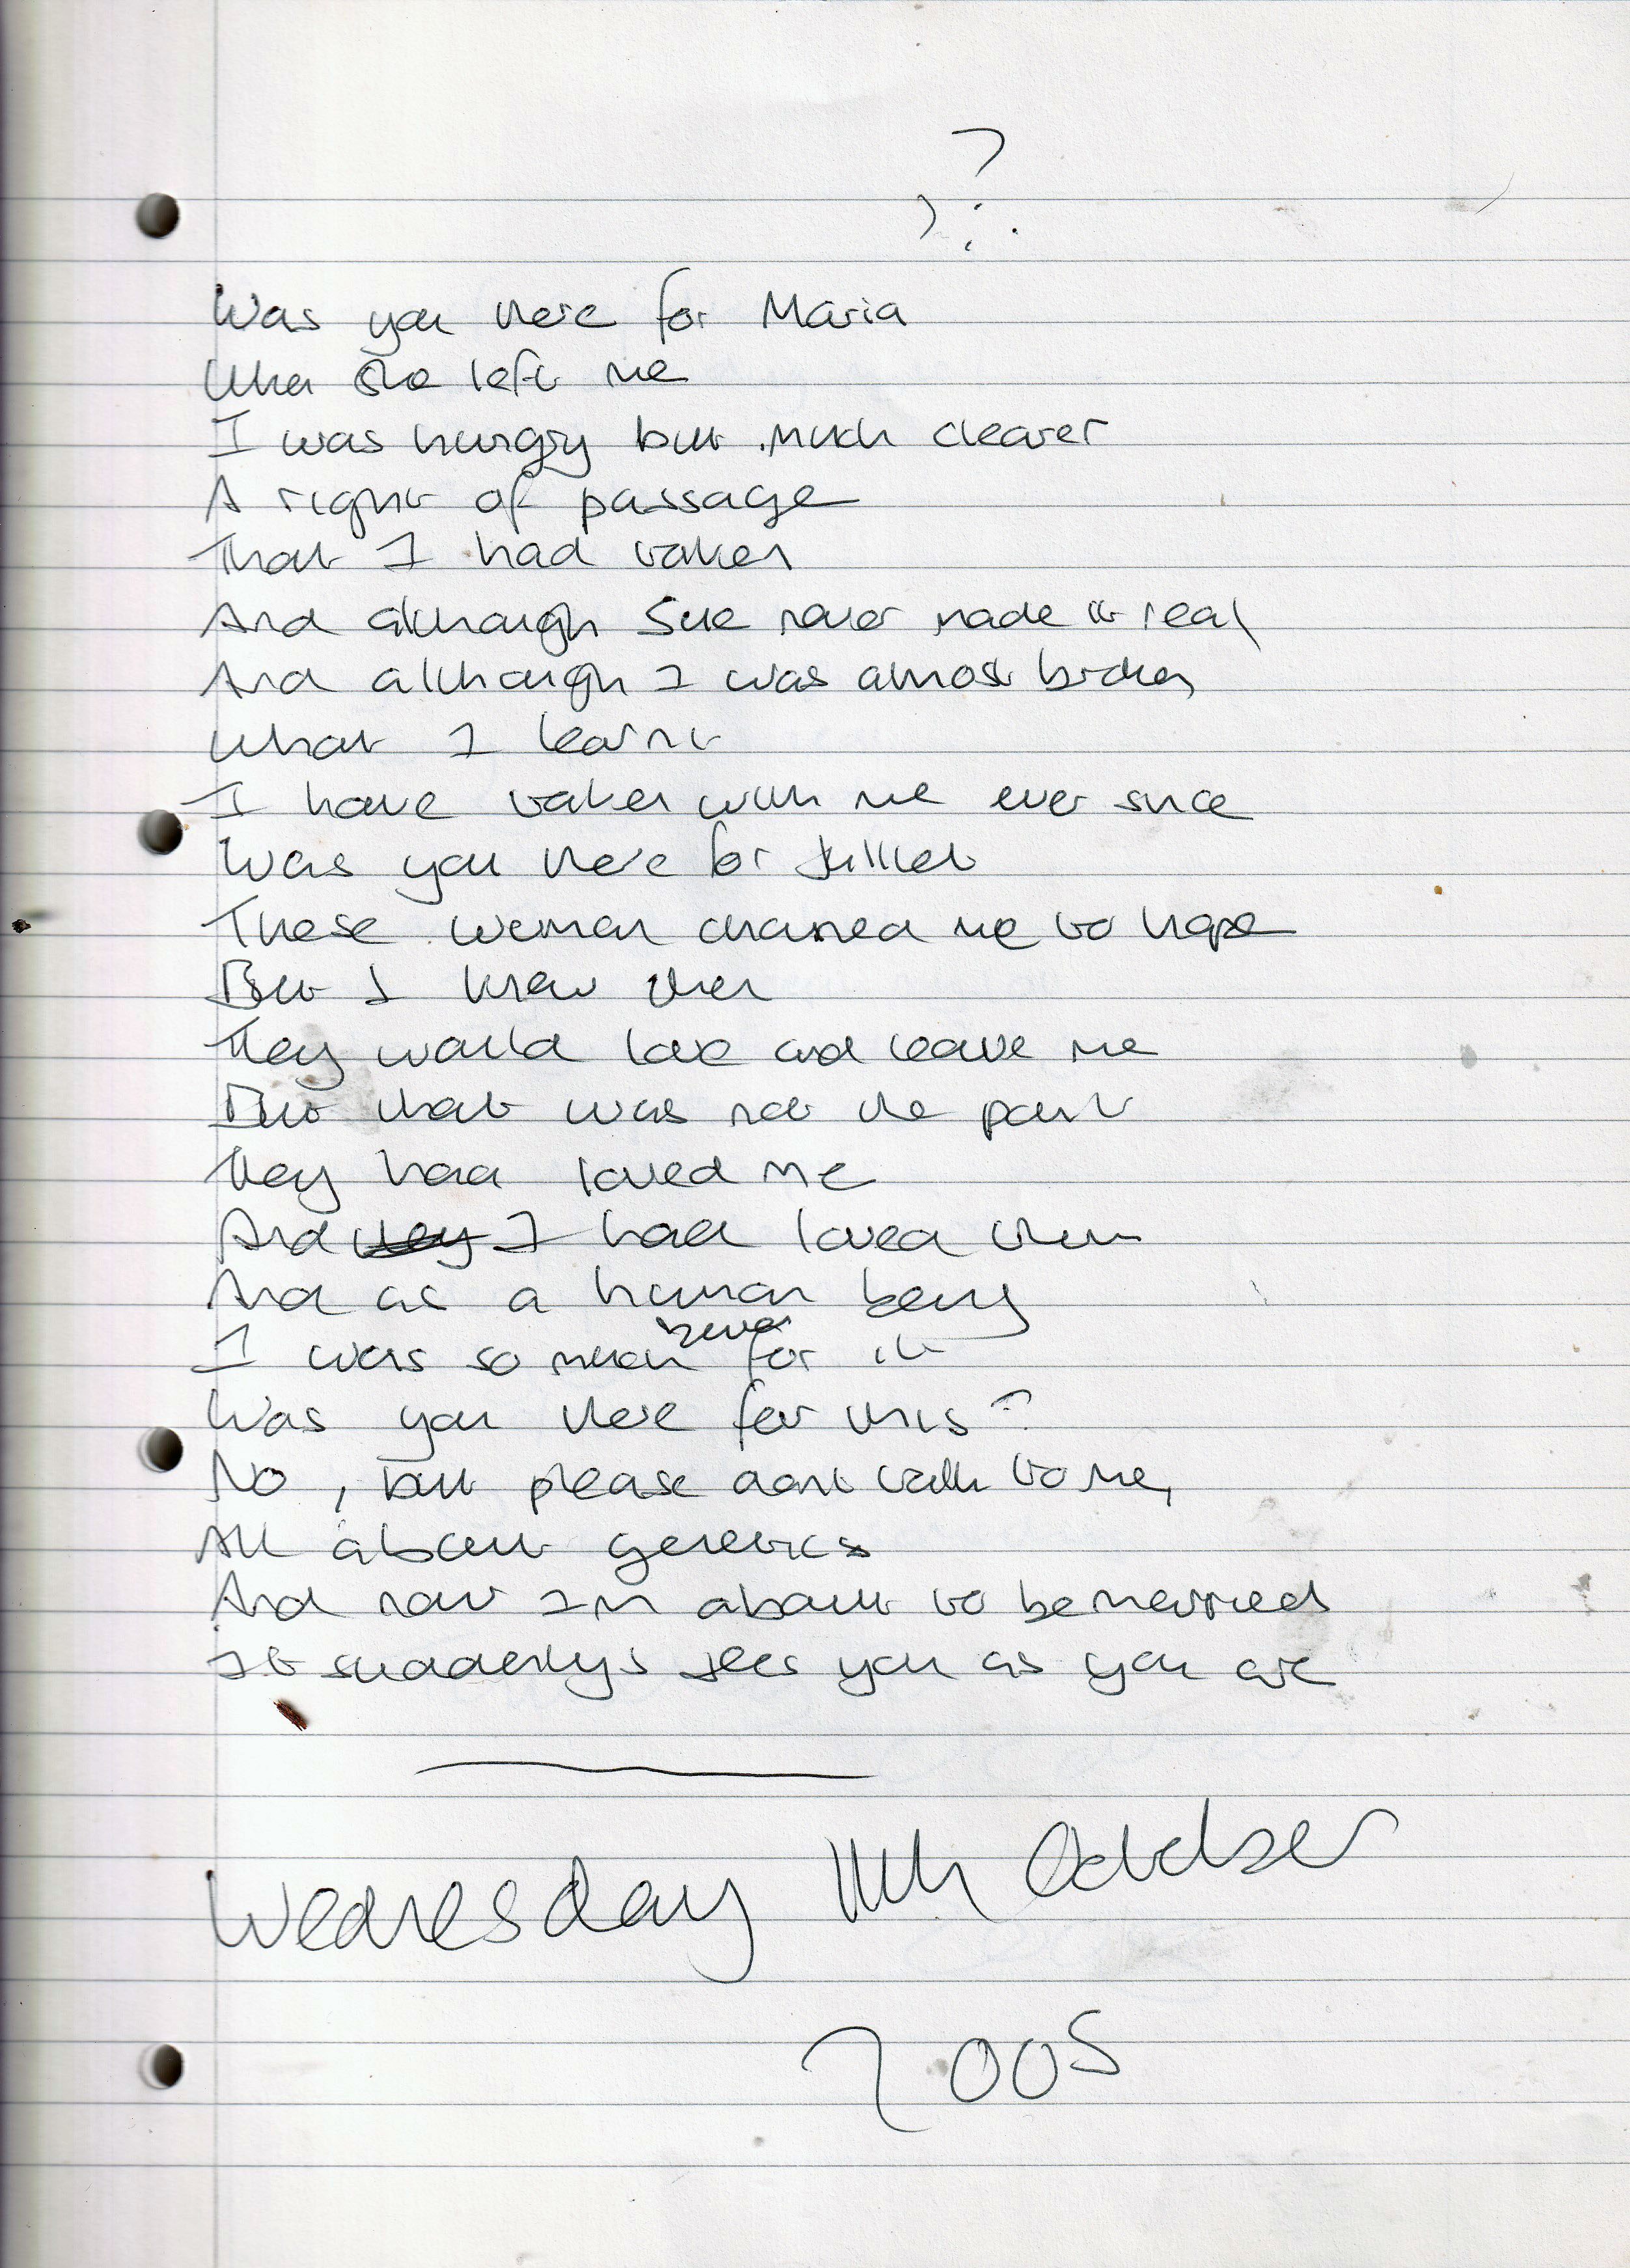 ?
Was you there for Maria
When she left me
I was hungry but much clearer
A right of passage
That I had taken
And although she never made it real
And although I was almost broken
What I learnt
I have taken with me ever since
Was you there for
These women chained me to hope
But I knew then
They would love and leave me
But that was not the point
They had loved me
And they I had loved them
And as a human being
I was so much better for it
Was you there for this?
No, but please dont talk to me,
All about genetics
And now Im about to be married
It suddenlys sees you as you are
Wednesday 11th October
2005